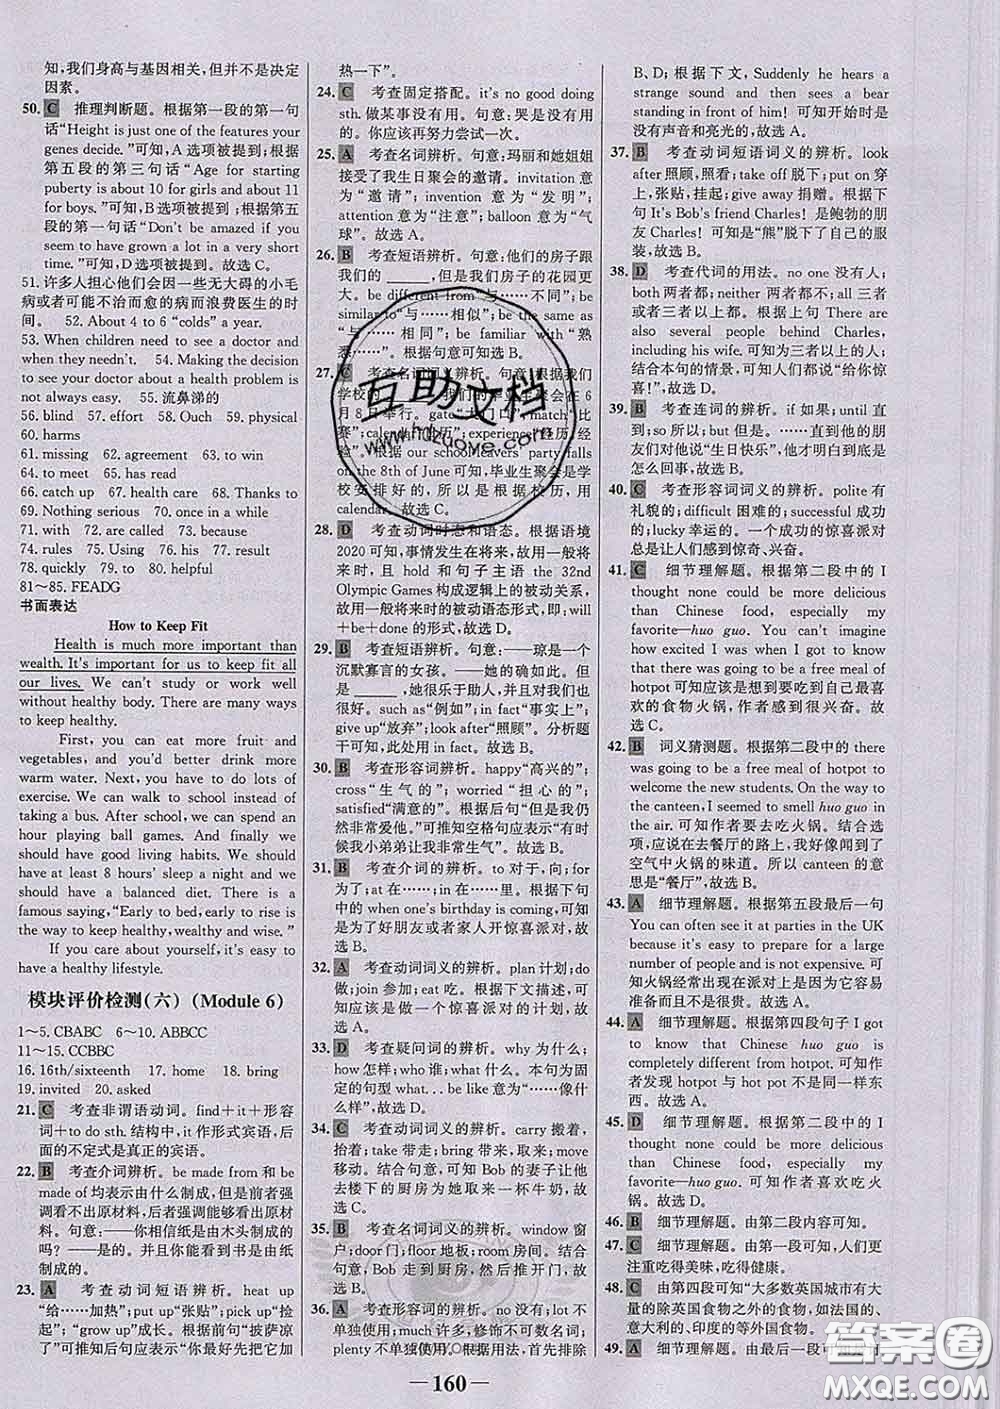 知,我们身高与基因相关,但并不是决定
因素。
50. C 推理判断题。根据第一段的第一句
话“Height is just one of the features your
genes decide. ”可知,A选项被提到;根据
第五段的第三句话“Age for starting
puberty is about 10 for girls and about 11
for boys. ”可知,B选项被提到;根据第五
段的第一句话“Don't be disappointed if you
seem to have grown a lot in a very short
time. ”可知,D选项被提到。故选C。
51. 许多人担心他们会因一些无大碍的小毛
病或者可能不治而愈的病而浪费医生的时
间。 52. About 4 to 6 “colds” a year.
53. When children need to see a doctor and
when they needn't. 54. Making the decision
to see your doctor about a health problem is
not always easy. 55. 流鼻涕的
56. blind 57. effort 58. Ouch 59. physical
60. harms
61. missing 62. around 63. to win
64. to meet 65. has read
66. catch up 67. health care 68. Thanks to
69. Nothing serious 70. once in a while
71. with 72. are called 73. because
74. rules 75. Using 76. his 77. result
78. quickly 79. to 80. helpful
81～85. FEADG
书面表达
How to Keep Fit
Health is much more important than
wealth. It's important for us to keep fit all
our lives. We can't study or work well
without healthy body. There are many ways
to keep healthy.
First, you can eat more fruit and
vegetables, and you'd better drink more
warm water. Next, you have to do lots of
exercise. We can walk to school instead of
taking a bus. After school, we can spend an
hour playing ball games. And finally we
should have good living habits. We should
have at least 8 hours' sleep a night and we
should have a balanced diet. There is a
famous saying, “Early to bed, early to rise is
the way to keep healthy, wealthy and wise. ”
If you care about yourself, it's easy to
have a healthy lifestyle.
模块评价检测(六) (Module 6)
1～5. CBABC 6～10. ABBCC
11～15. CCBBC
16. 16th/sixteenth 17. home 18. bring
19. invited 20. asked
21. C 考查非谓语动词。find+it+形容
词+to do sth. 结构中,it作形式宾语,后
面的不定式是真正的宾语。
22. B 考查介词辨析。be made from和be
made of均表示由什么制成,但是前者强
调看不出原材料,后者强调能够看出原材
料。句意:——你相信纸是由木头制成的
吗? ——是的,并且你能看到书是由纸
制成的。
23. A 考查动词短语辨析。heat up
“给……加热”;put up“张贴”;pick up“捡
起”;“grow up”成长。根据前句“披萨凉
了”可推知后句应表示“你最好先把它加
热一下”。
24. C 考查固定搭配。it's no good doing
sth. 做某事没有用的。句意:哭是没有用
的。你应该再努力尝试一次。
25. A 考查名词辨析。句意:玛丽和她姐姐
接受了我生日聚会的邀请。invitation 意为
“邀请”;invention 意为“发明”;
attention意为“注意”;balloon 意为“气
球”。故选A。
26. B 考查短语辨析。句意:他们的房子跟
我们的 ______,但是我们房子的花园更
大。be different from“与……不同”;be
similar to“与……相似”;be the same as
“与……相同”;be familiar with“熟
悉……”。根据句意可知选B。
27. C 考查名词词义辨析。句意:根据我们
学校的______,我们的毕业生聚会在6
月8日举行。gate“大门口”;match“比
赛”;calendar“日历”;experience“经历,经
验”。根据our school leavers' party falls
on the 8th of June可知,毕业生聚会是
学校安排好的,所以是根据校历,用
calendar。故选C。
28. D 考查动词时态和语态。根据语境
2020可知,事情发生在将来,故用一般将
来时;且hold和句子主语the 32nd
Olympic Games构成逻辑上的被动关系,
故用一般将来时的被动语态形式,即:will
+be+done的形式,故选D。
29. B 考查短语辨析。句意:——琼是一个
沉默寡言的女孩。——她的确如此。但
是______,她很乐于助人,并且对我们友
好。such as“例如”;in fact“事实上”;
give up“放弃”;look after“照顾”。分析题
干可知,此处用in fact。故选B。
30. B 考查形容词辨析。happy“高兴的”;
cross“生气的”;worried“担心的”;
satisfied“满意的”。根据后句“但是我
仍然非常爱他。”可推知空格句应表示“有时候
我小弟弟让我非常生气”。故选B。
31. B 考查介词的辨析。to对于,向;for
为了;at在……;in在……里。根据下句
中的when one's birthday is coming,可知
是为了好朋友或者家人开惊喜派对,故
选B。
32. A 考查动词词义的辨析。plan计划;do
做;join参加;eat吃。根据下文描述,可
知是做一个惊喜派对的计划。结合选项,
故选A。
33. D 考查疑问词的辨析。why为什么;
how怎么样;who谁;what什么。本句为
固定的句型what...be like…——“……像什
么样”,故选D。
34. C 考查动词词义的辨析。carry搬着,
抬着;take带走;bring带来,取来;move
移动。结合句意,可知Bob的妻子让他
去楼下的厨房为她取来一杯牛奶,故
选C。
35. B 考查名词词义的辨析。window窗
户;door门;floor地板;room房间。结合
句意,Bob走到厨房,然后打开门,故
选B。
36. A 考查形容词的辨析。no没有;lot不
单独使用;much许多,修饰不可数名词;
plenty不单独使用。根据用法,首先排除
B、D;根据下文,Suddenly he hears a
strange sound and then sees a big bear
standing in front of him! 可知此时厨房
里没有声音和亮光的,故选A。
37. B 考查动词短语词义的辨析。look
after照顾,照看;take off脱下;put on穿
上,张贴,挂起;give away捐赠。根据下
句It's Bob's friend Charles! 是鲍勃的朋
友Charles! 可知是“熊”脱下了自己的服
装,故选B。
38. D 考查代词的用法。no one没有人;
both两者都;neither两者都不;all三者
或者三者以上都。根据上句There are
also several people behind Charles,
including his wife. 可知,为三者以上。
结合本句的情景,他们都说“给你惊
喜!”,故选D。
39. B 考查连词的辨析。if如果;until直
到;so所以;but但是。……直到他的朋
友们对他说“生日快乐”,他才明白到底是
怎么回事,故选B。
40. C 考查形容词词义的辨析。polite有
礼貌的;difficult困难的;successful成功
的;lucky幸运的。一个成功的惊喜派对
总是让人们感到惊奇、兴奋。
41. C 细节理解题。根据第二段中的I
thought none could be more delicious
than Chinese food, especially my
favorite—huo guo. You can't imagine
how excited I was when I got to know
that there was going to be a free meal of
hotpot可知应该是想到要吃到自己最喜
欢的食物火锅,作者感到很兴奋。
故选C。
42. B 词义猜测题。根据第二段中的there
was going to be a free meal of hotpot to
welcome the new students. On the way to
the canteen, I seemed to smell huo guo in
the air. 可知作者要去吃火锅。结合选
项,应该是去餐厅的路上,我好像闻到了
空气中火锅的味道。所以canteen的意
思是“餐厅”,故选B。
43. A 细节理解题。根据第五段最后一句
You can often see at parties in the UK
because it's easy to prepare for a large
number of people and is convenient. 可知
火锅经常出现在派对中是因为它容
易准备而且不贵。故选A。
44. A 细节理解题。根据第四段句子I got
to know that Chinese huo guo is
completely different from hotpot. 可知作
者发现hotpot与huo guo不是一样东
西。故选A。
45. D 细节理解题。根据第二段中的I
thought none could be more delicious
than Chinese food, especially my
favorite—huo guo可知作者喜欢吃火锅。
故选D。
46. B 细节理解题。由第二段内容可知。
47. C 细节理解题。由第二段可知,人们更
注重吃得美味、吃得健康。
48. C 由第四段可知“大多数英国城市有大
量的除英国食物之外的食物,如法国的、
意大利的、印度的等外国食物。
49. A 细节理解题。由最后一段可知此题
— 160 —
互助文档
www.hdzuoye.com
答案圈
MXQE.COM